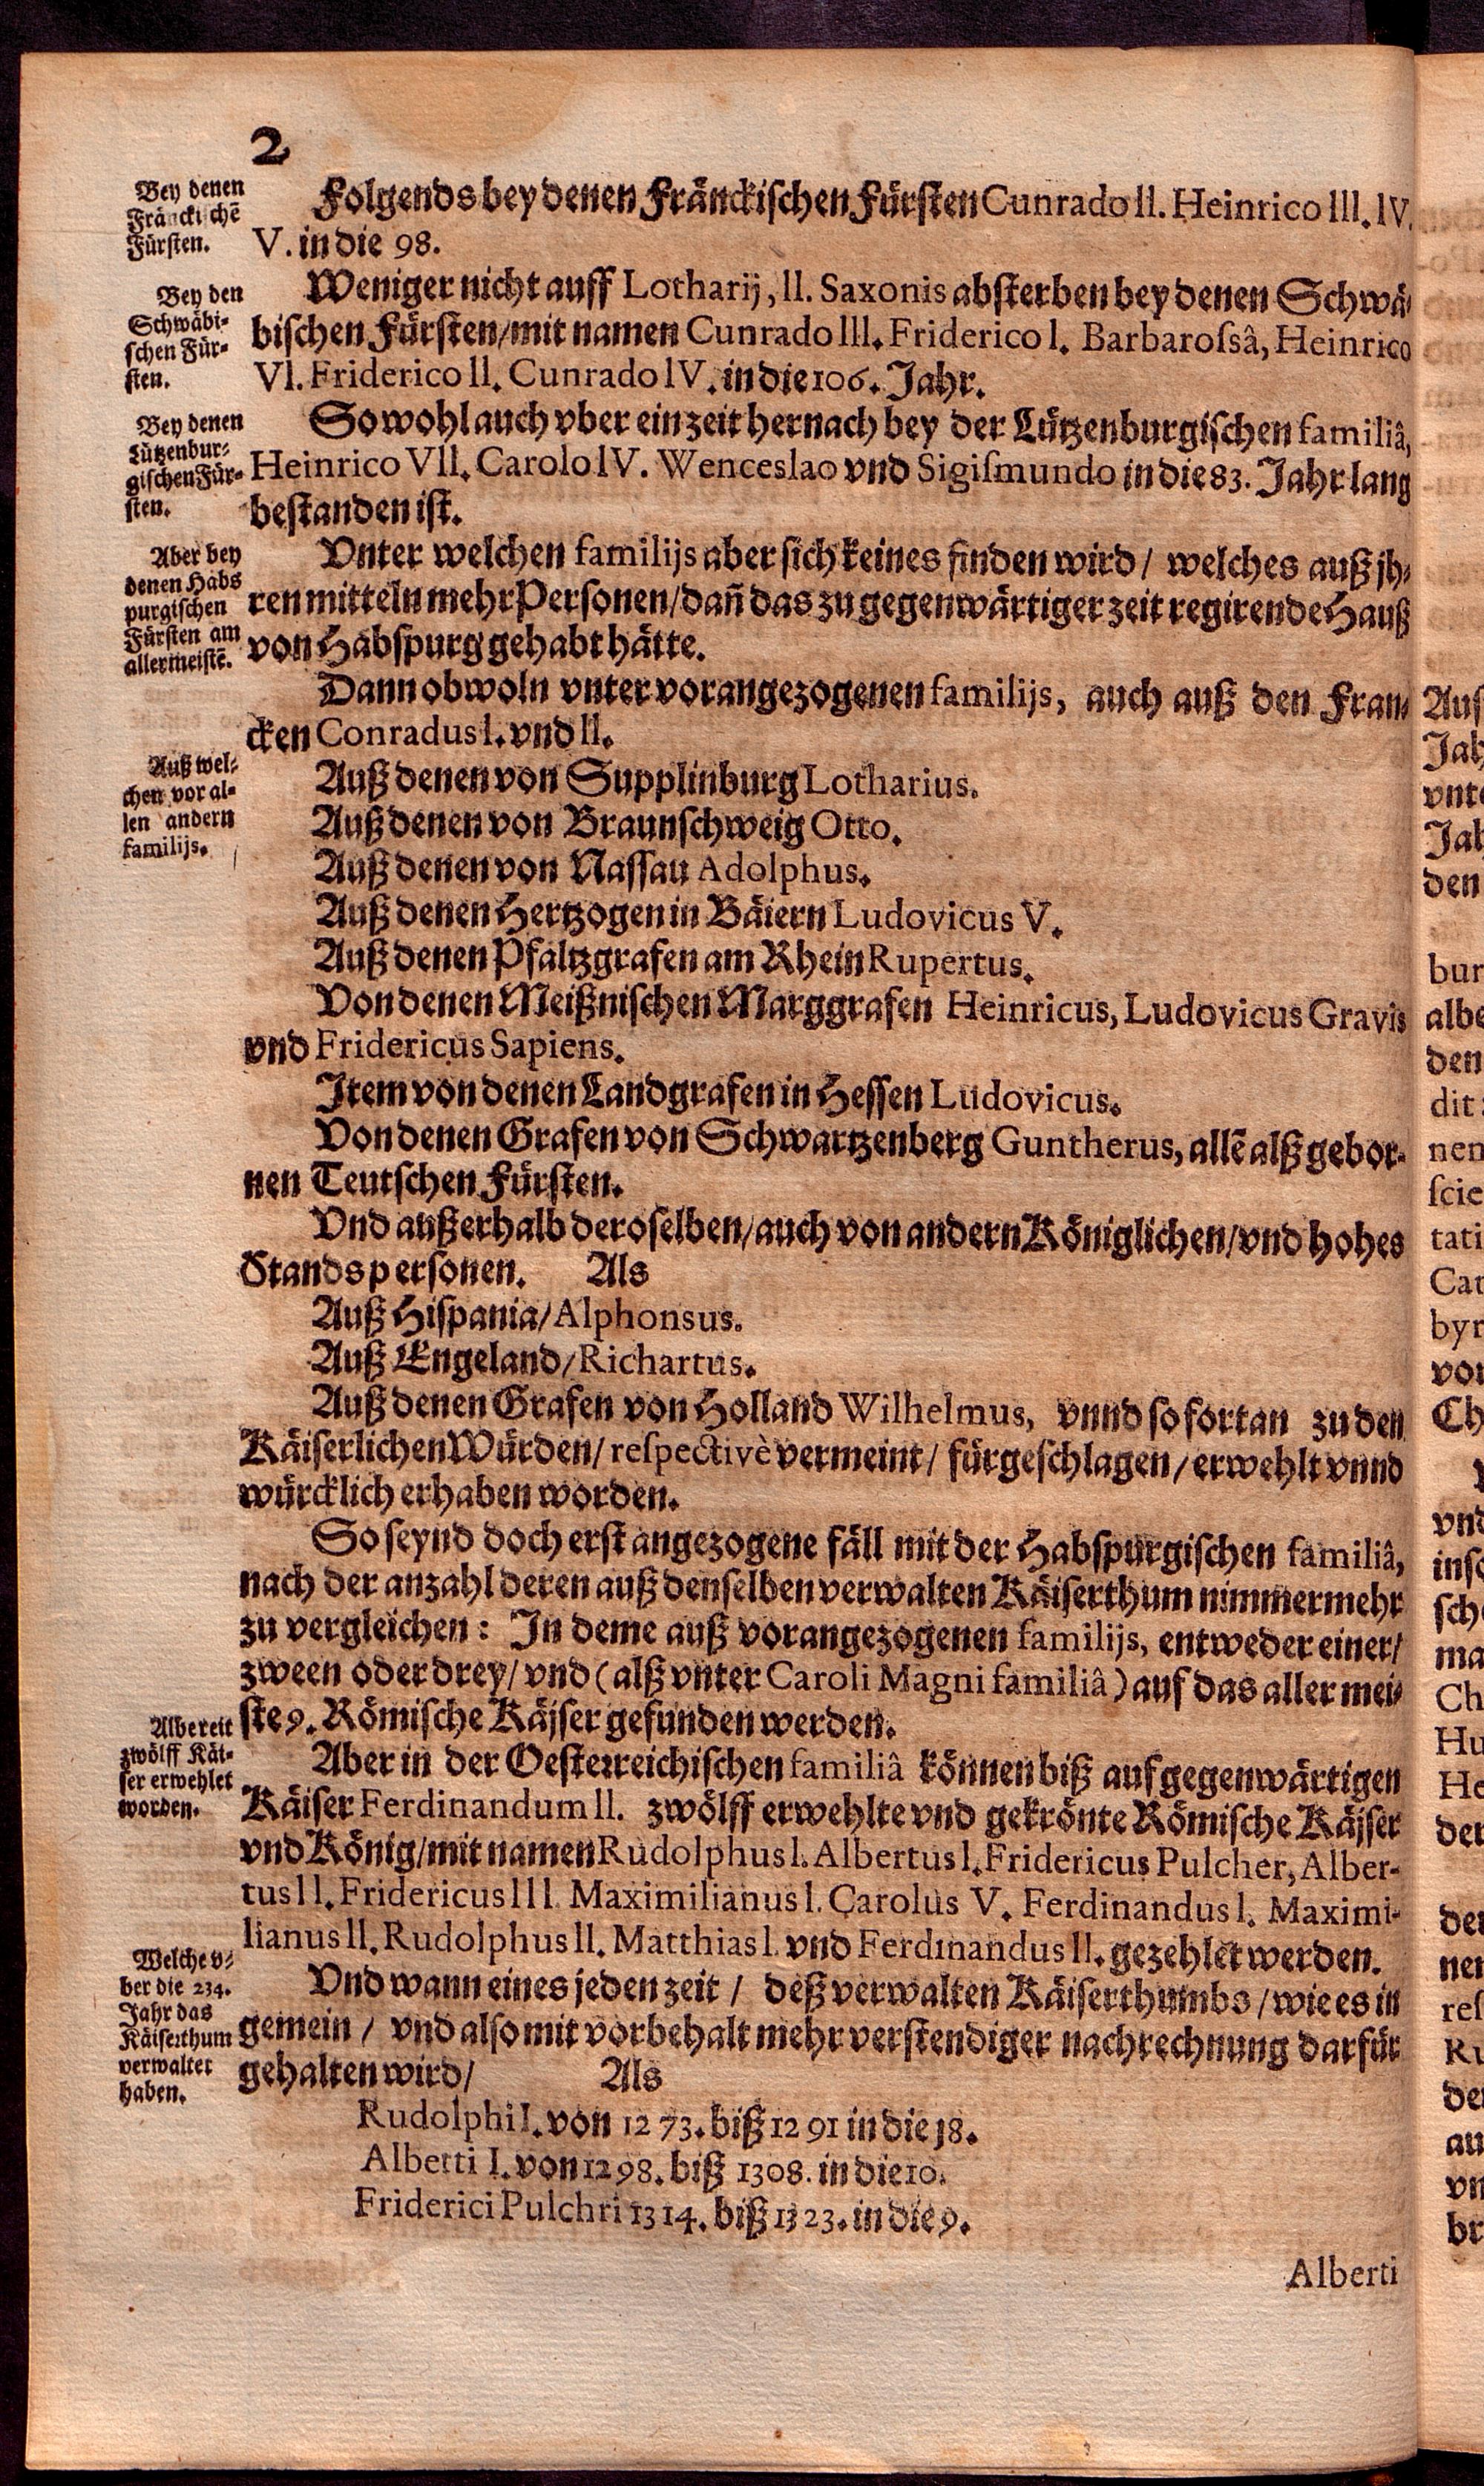 2
Bey denen
Fränckischẽ
Fürsten.
Folgends bey denen Fränckischen Fürsten Cunrado ll. Heinrico lll. lV.
V. in die 98.
Bey den
Schwäbi-
schen Für-
sten.
Weniger nicht auff Lotharij, ll. Saxonis absterben bey denen Schwä-
bischen Fürsten/mit namen Cunrado lll. Friderico l. Barbarossâ, Heinrico
Vl. Friderico ll. Cunrado lV. in die 106. Jahr.
Bey denen
Lützenbur-
gischen Für-
sten.
So wohl auch vber ein zeit hernach bey der Lützenburgischen familiâ,
Heinrico Vll. Carolo lV. Wenceslao vnd Sigismundo in die 83. Jahr lang
bestanden ist.
Aber bey
denen Habs
purgischen
Fürsten am
allermeistẽ.
Vnter welchen familijs aber sich keines finden wird/ welches auß jh-
ren mitteln mehr Personen/dañ das zu gegenwärtiger zeit regirende Hauß
von Habspurg gehabt hätte.
Dann obwoln vnter vorangezogenen familijs, auch auß den Fran-
cken Conradus l. vnd ll.
Auß wel-
chen vor al-
len andern
familijs.
Auß denen von Supplinburg Lotharius.
Auß denen von Braunschweig Otto.
Auß denen von Nassau Adolphus.
Auß denen Hertzogen in Bäiern Ludovicus V.
Auß denen Pfaltzgrafen am Rhein Rupertus.
Von denen Meißnischen Marggrafen Heinricus, Ludovicus Gravis
vnd Fridericus Sapiens.
Item von denen Landgrafen in Hessen Ludovicus.
Von denen Grafen von Schwartzenberg Guntherus, allẽ alß gebor-
nen Teutschen Fürsten.
Vnd außerhalb deroselben/auch von andern Königlichen/vnd hohes
Stands personen. Als
Auß Hispania/Alphonsus.
Auß Engeland/Richartus.
Auß denen Grafen von Holland Wilhelmus, vnnd so fortan zu den
Käiserlichen Würden/ respectivè vermeint/ fürgeschlagen/erwehlt vnnd
würcklich erhaben worden.
So seynd doch erst angezogene fäll mit der Habspurgischen familiâ,
nach der anzahl deren auß denselben verwalten Käiserthum nimmermehr
zu vergleichen: In deme auß vorangezogenen familijs, entweder einer/
zween oder drey/ vnd (alß vnter Caroli Magni familiâ) auf das aller mei-
ste 9. Römische Käjser gefunden werden.
Albereit
zwölff Käi-
ser erwehlet
worden.
Aber in der Oesterreichischen familiâ können biß auf gegenwärtigen
Käiser Ferdinandum ll. zwölff erwehlte vnd gekrönte Römische Käjser
vnd König/mit namen Rudolphus l. Albertus l. Fridericus Pulcher, Alber-
tus ll. Fridericus lll. Maximilianus l. Carolus V. Ferdinandus l. Maximi-
lianus ll. Rudolphus ll. Matthias l. vnd Ferdinandus ll. gezehlet werden.
Welche v-
ber die 234.
Jahr das
Käiserthum
verwaltet
haben.
Vnd wann eines jeden zeit / deß verwalten Käiserthumbs /wie es in
gemein / vnd also mit vorbehalt mehr verstendiger nachrechnung darfür
gehalten wird/ Als
Rudolphi I. von 1273. biß 1291 in die 18.
Alberti I. von 1298. biß 1308. in die 10.
Friderici Pulchri 1314. biß 1323. in die 9.
Alberti